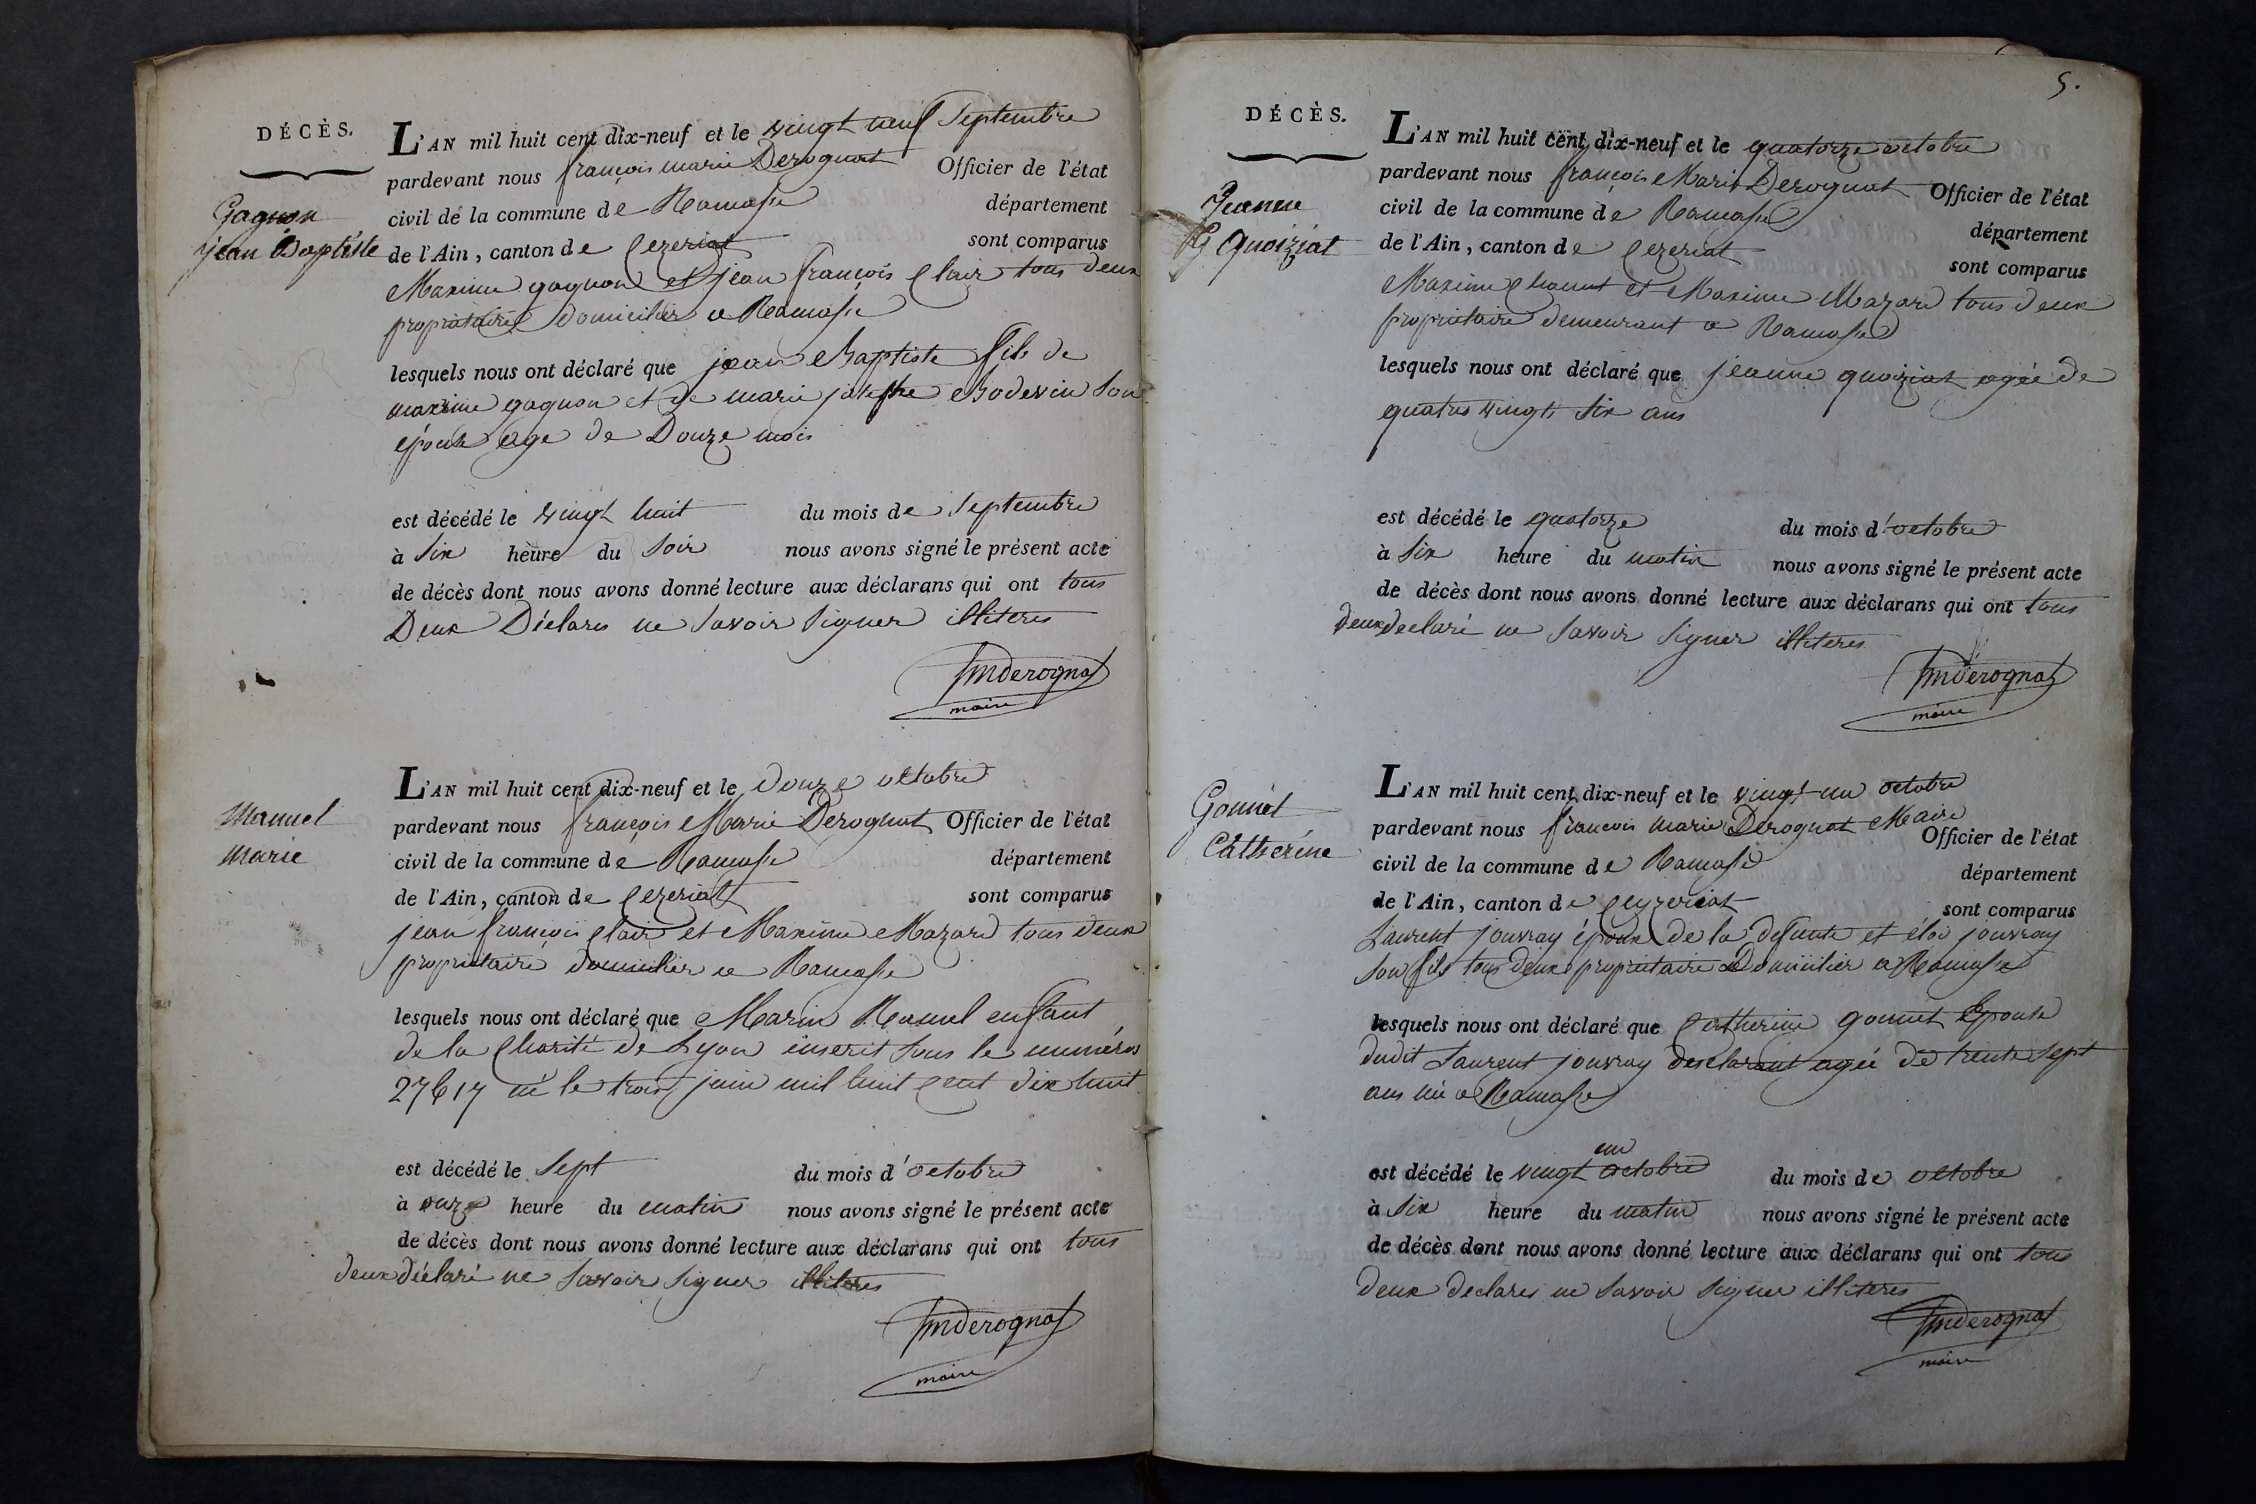 DÉCÈS.
Gagnon
jean Baptiste
L'AN mil huit cent dix-neuf et le vingt neuf Septembre
pardevant nous françois marie Derognat Officier de l'état
civil de la commune de Ramasse département
de l'Ain, canton de Cezeriat sont comparus
Maxime gagnon et jean françois Clair tous deux
propriétaire domicilier a Ramasse
lesquels nous ont déclaré que jean Baptiste fils de
maxime gagnon et de marie josephe Bodevin son
épouse age de Douze mois
est décédé le vingt huit du mois de Septembre
à Six heure du Soir nous avons signé le présent acte
de décès dont nous avons donné lecture aux déclarans qui ont tous
Deux Déclares ne Savoir Signer illiteres
fmderognat
maire
Manuel
Marie
L'AN mil huit cent dix-neuf et le douze octobre
pardevant nous françois Marie Derognat Officier de l'état
civil de la commune de Ramasse département
de l'Ain, canton de Cezeriat sont comparus
jean françois Clair et Maxime Mazard tous deux
propriétaire domicilier a Ramasse
lesquels nous ont déclaré que enfant
de la Charité de Lyon inscrit sous le numéros
27617 né le trois juin mil huit cent dix huit
est décédé le Sept du mois d'octobre
à onze heure du matin nous avons signé le présent acte
de décès dont nous avons donné lecture aux déclarans qui ont tous
deux déclaré ne Savoir Signer illiteres
fmderognat
maire
5.
DÉCÈS.
Jeanne
Quoiziat
L'AN mil huit cent dix-neuf et le quatorze octobre
pardevant nous françois Marie Derognat Officier de l'état
civil de la commune de Ramasse département
de l'Ain, canton de Cezeriat sont comparus
Maxime et Maxime Mazard tous deux
proprietaire demeurant a Ramasse
lesquels nous ont déclaré que jeanne quoiziat agée de
quatre vingt Six ans
est décédé le quatorze du mois d'octobre
à Six heure du matin nous avons signé le présent acte
de décès dont nous avons donné lecture aux déclarans qui ont tous
deux declaré ne Savoir Signer illiteres
fmderognat
maire
Gonnet
Catherine
L'AN mil huit cent dix-neuf et le vingt un octobre
pardevant nous françois marie Derognat Maire Officier de l'état
civil de la commune de Ramasse département
de l'Ain, canton de Ceyzeriat sont comparus
Laurent jouvray époux de la defunte et éloi jouvray
son fils tous deux propriétaire Domicilier a Ramasse
lesquels nous ont déclaré que Catherine gonnet Epouse
dudit Laurent jouvray desclarant agée de trente sept
ans né a Ramasse
un
est décédé le vingt octobre du mois de octobre
à Six heure du matin nous avons signé le présent acte
de décès dont nous avons donné lecture aux déclarans qui ont tous
deux declares ne Savoir Signer illiteres
fmderognat
maire